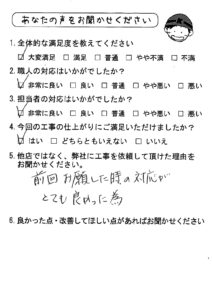 あなたの声をお聞かせください
1. 全体的な満足度を教えてください
☑ 大変満足 □ 満足 □ 普通 □ やや不満 □ 不満
2. 職人の対応はいかがでしたか?
☑ 非常に良い □ 良い □ 普通 □ やや悪い □ 悪い
3. 担当者の対応はいかがでしたか?
☑ 非常に良い □ 良い □ 普通 □ やや悪い □ 悪い
4. 今回の工事の仕上がりにご満足いただけましたか?
☑ はい □ どちらともいえない □ いいえ
5. 他店ではなく、弊社に工事を依頼して頂けた理由を
お聞かせください。
前回お願した時の対応が
とても良かった為
6. 良かった点・改善してほしい点があればお聞かせください